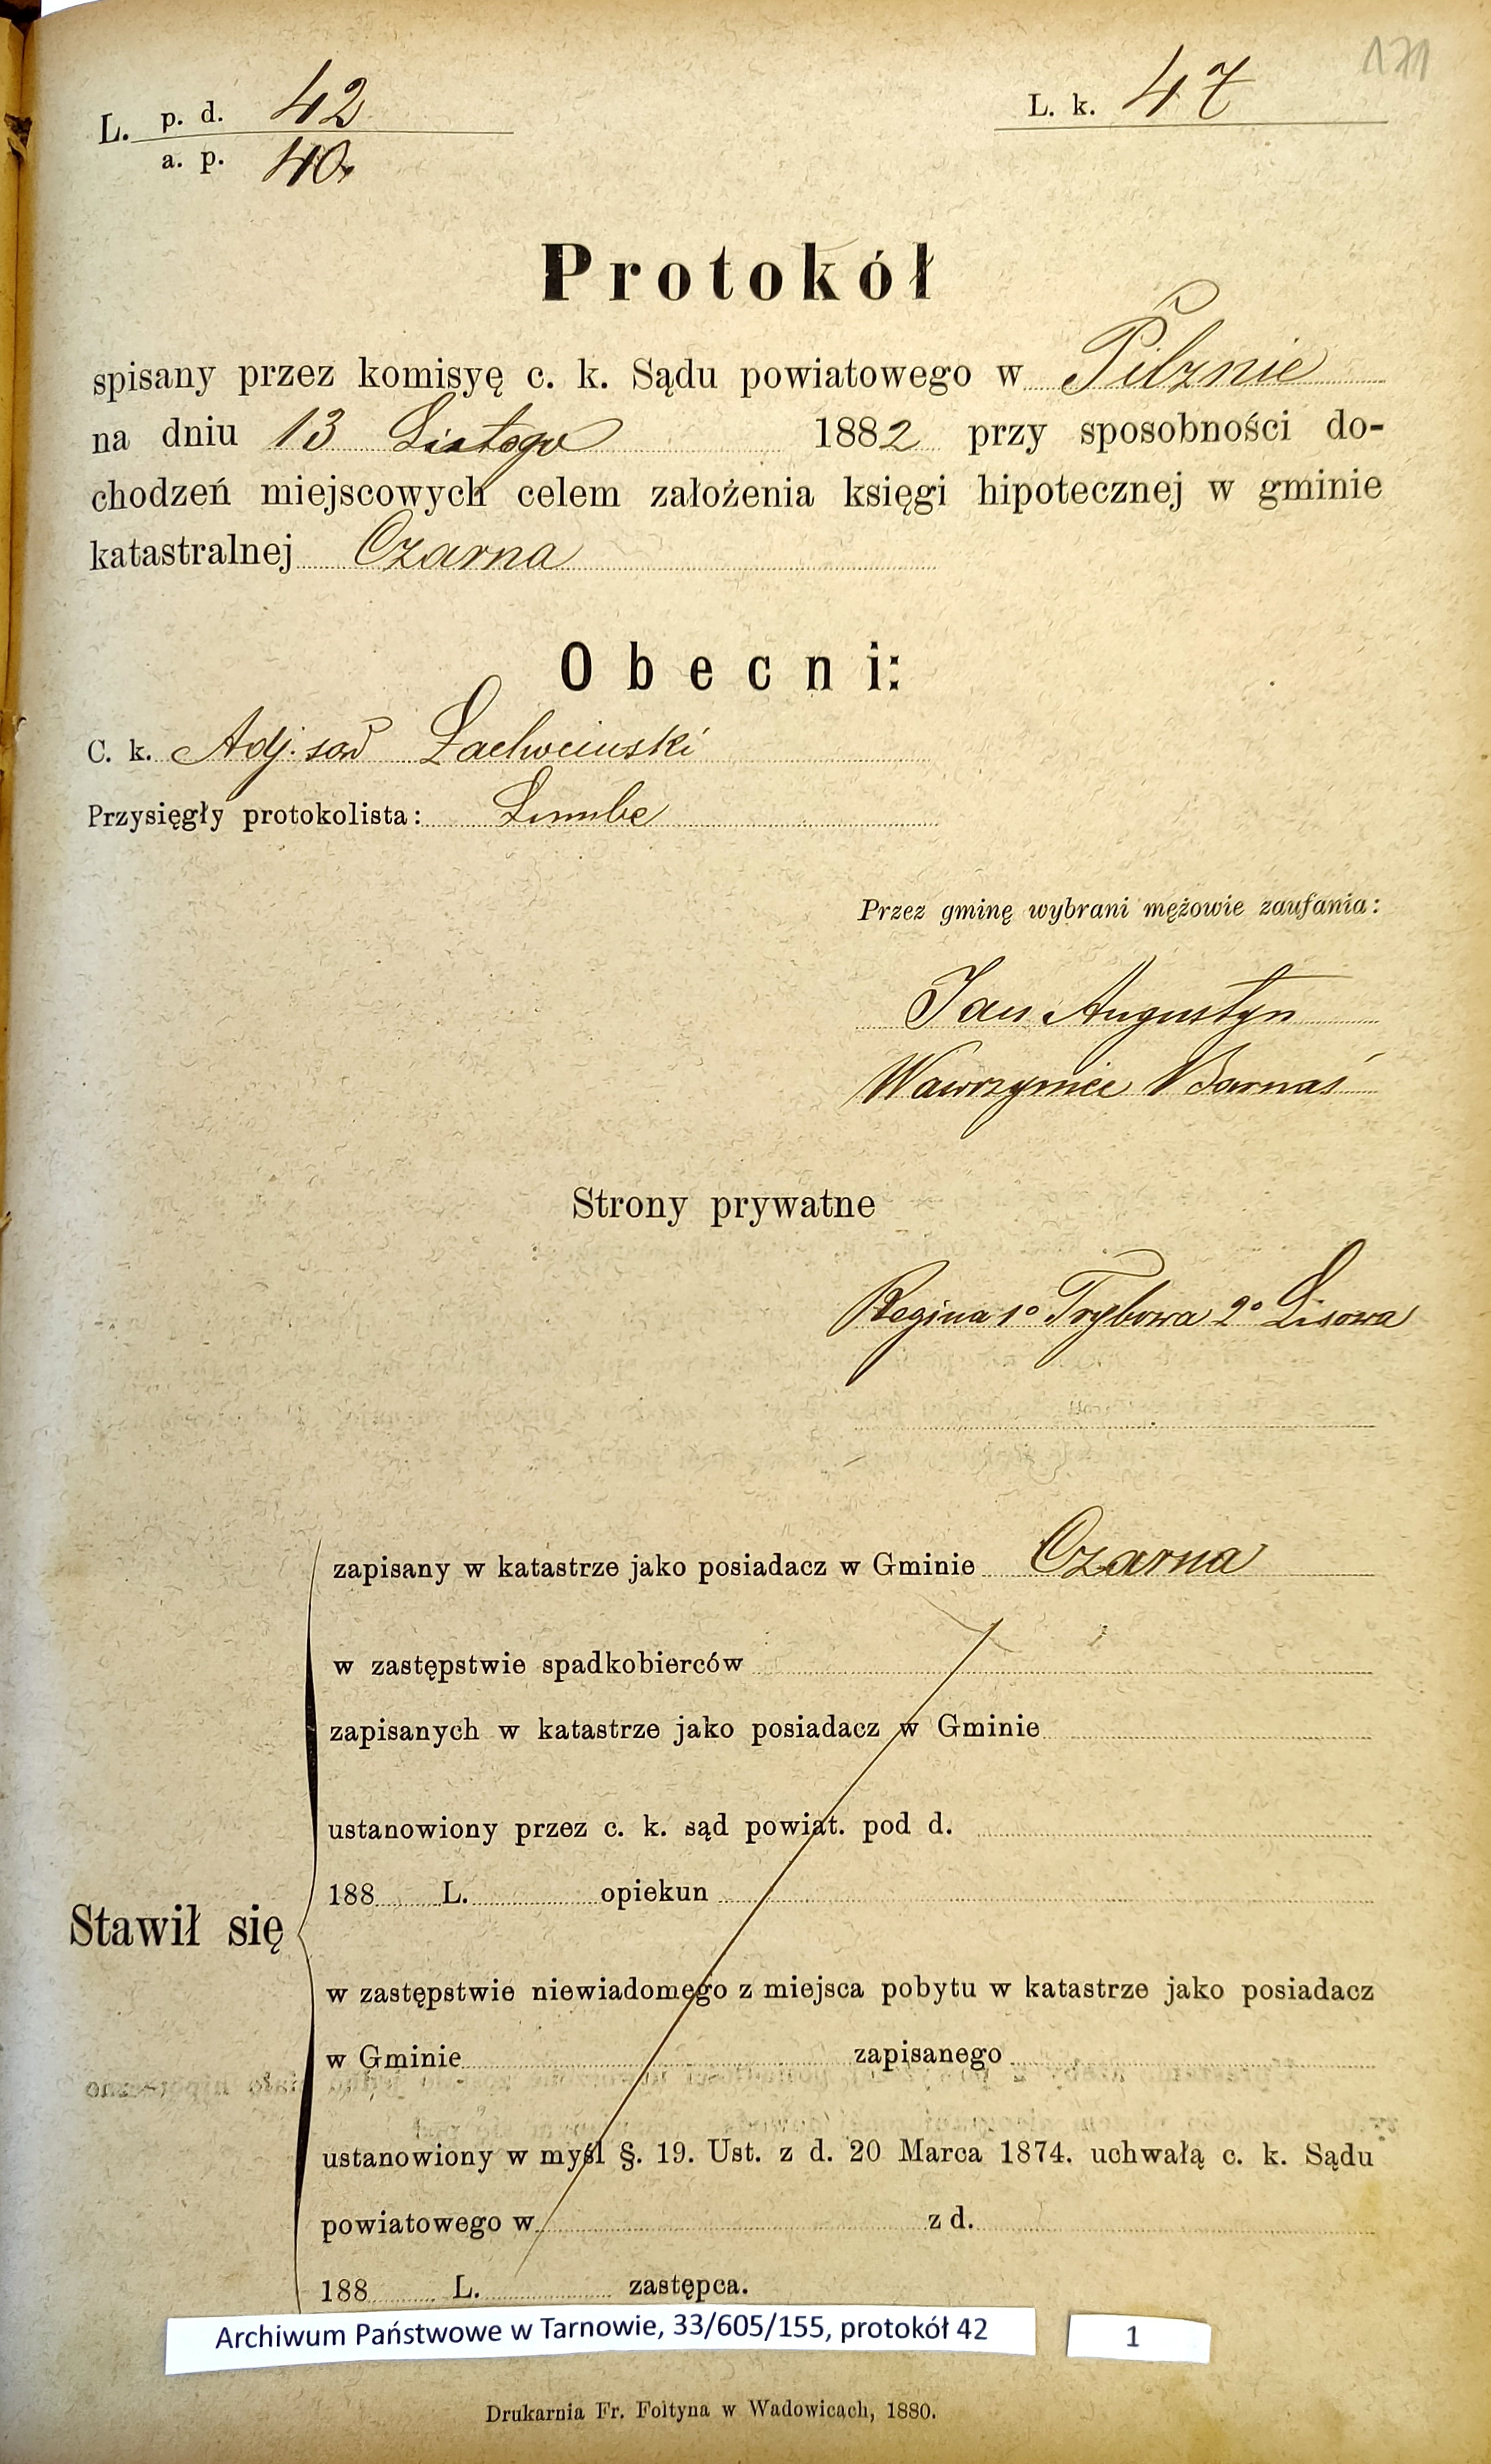 171
L. p. d. 42
a. p. 40.
L. k. 47
Protokół
spisany przez komisyę c. k. Sądu powiatowego w Pilznie
na dniu 13 Lutego 1882 przy sposobności do-
chodzeń miejscowych celem założenia księgi hipotecznej w gminie
katastralnej Czarna
Obecni:
C. k. Adj. sąd
Przysięgły protokolista:
Przez gminę wybrani mężowie zaufania:
Jan Augustyn
Wawrzyniec Barnaś
Strony prywatne
Regina 1º Trybowa 2º Lisowa
zapisany w katastrze jako posiadacz w Gminie Czarna
w zastępstwie spadkobierców
zapisanych w katastrze jako posiadacz w Gminie
ustanowiony przez c. k. sąd powiat. pod d.
188 L. opiekun
Stawił się
w zastępstwie niewiadomego z miejsca pobytu w katastrze jako posiadacz
w Gminie zapisanego
ustanowiony w myśl §. 19. Ust. z d. 20 Marca 1874. uchwałą c. k. Sądu
powiatowego w z d.
188 L. zastępca.
Archiwum Państwowe w Tarnowie, 33/605/155, protokół 42
1
Drukarnia Fr. Foltyna w Wadowicach, 1880.